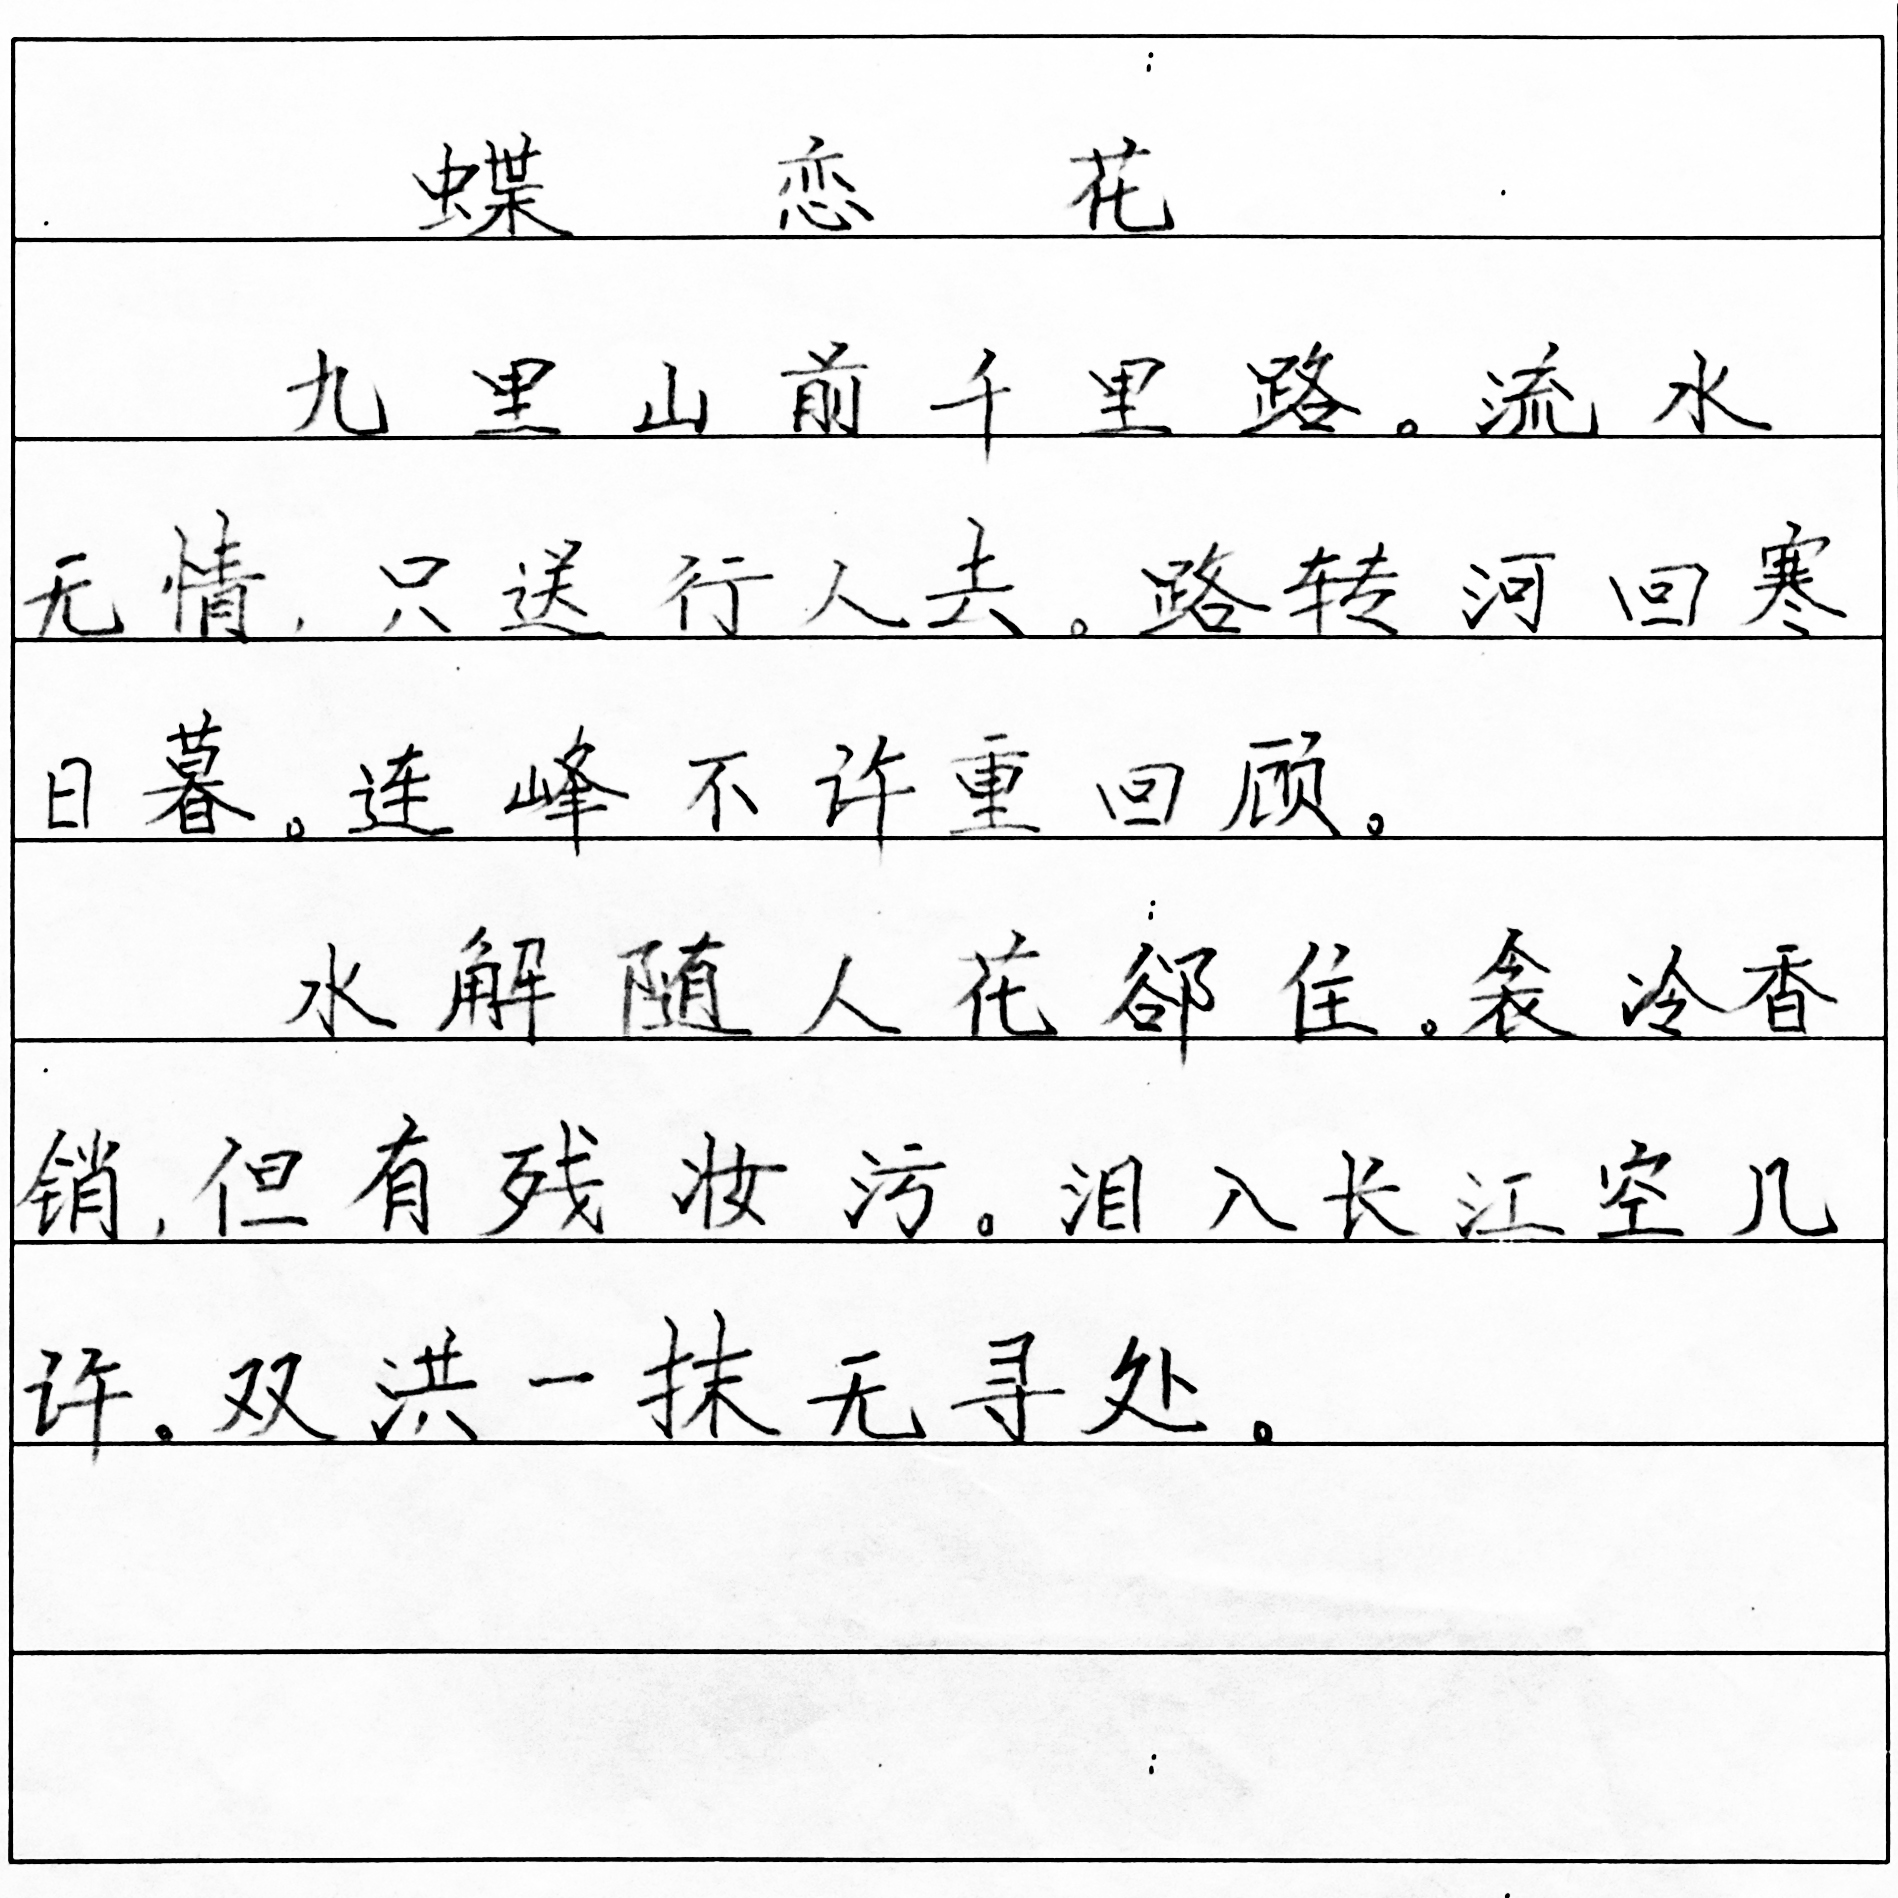 蝶恋花
九里山前千里路。流水
无情,只送行人去。路转河回寒
日暮。连峰不许重回顾。
水解随人花郤住。衾冷香
销,但有残妆污。泪入长江空几
许。双洪一抹无寻处。